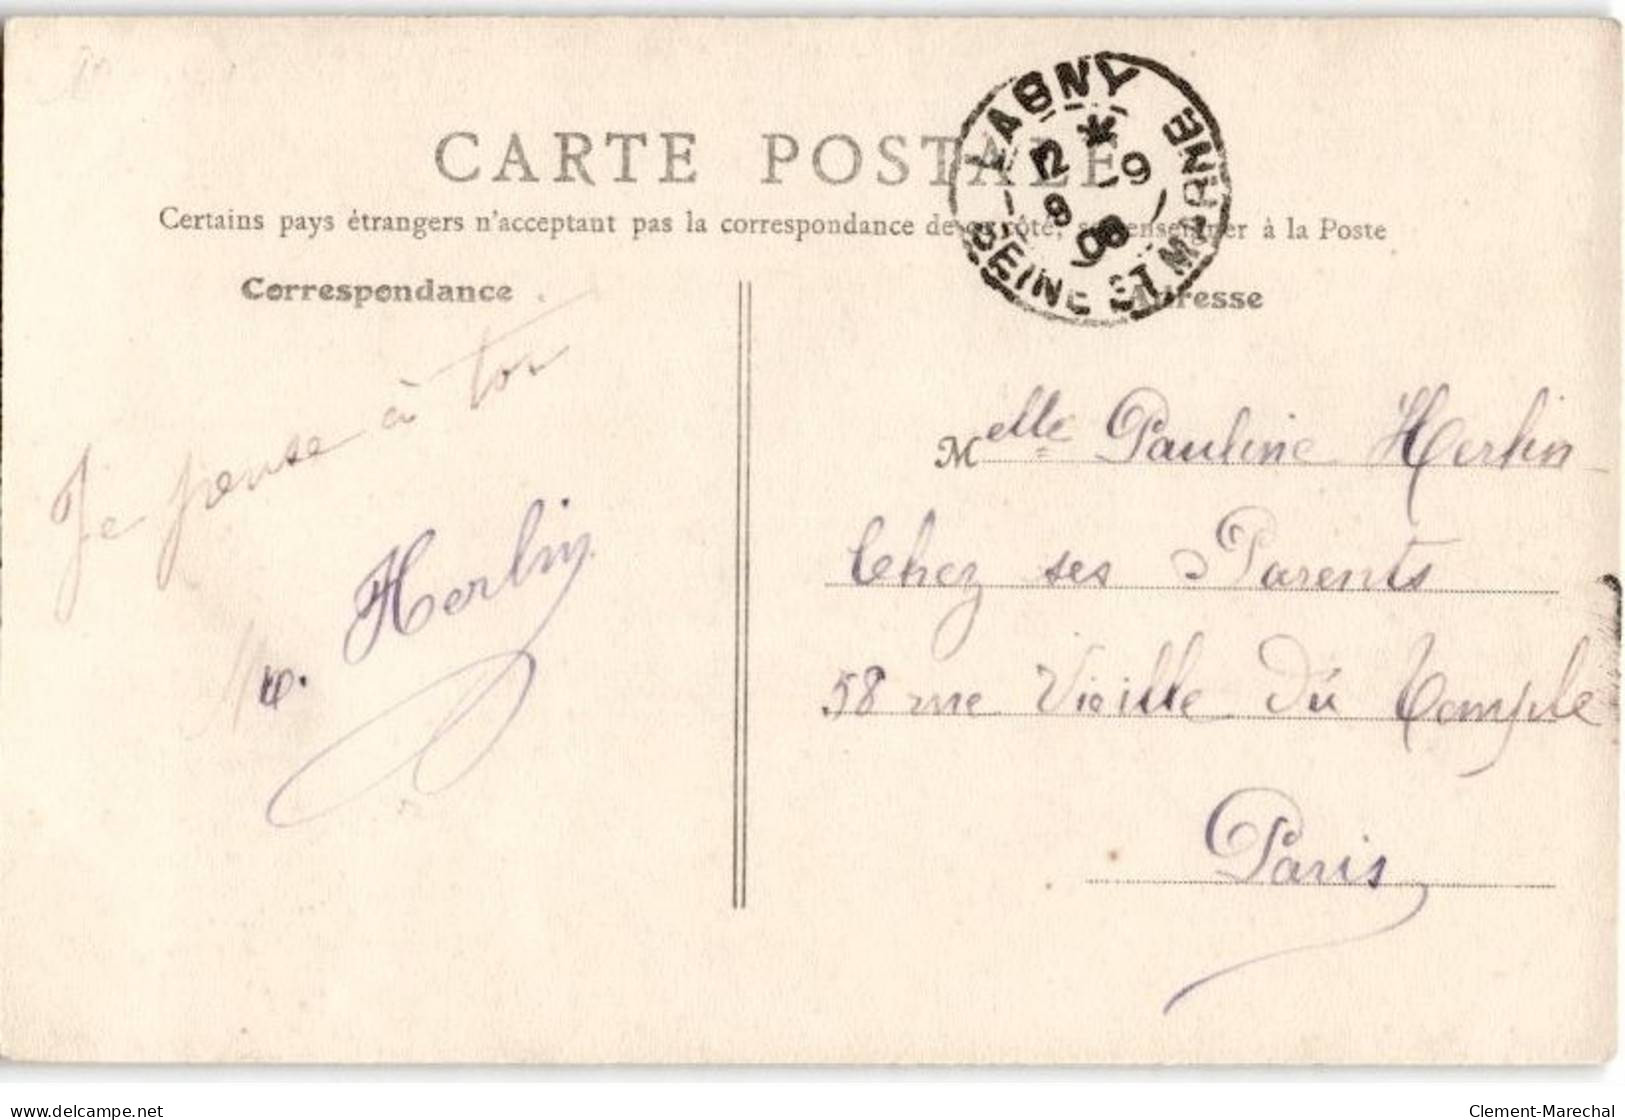 CARTE POSTALE
Certains pays étrangers n'acceptent pas la correspondance de ce côté, se renseigner à la Poste
Correspondance
Adresse
LAGNY
12 * 9
9
08
SEINE ET MARNE
Je pense à toi
Herlin
Melle Pauline Herlin
Chez ses Parents
58 rue Vieille du Temple
Paris
delcampe.net
Clement-Marechal